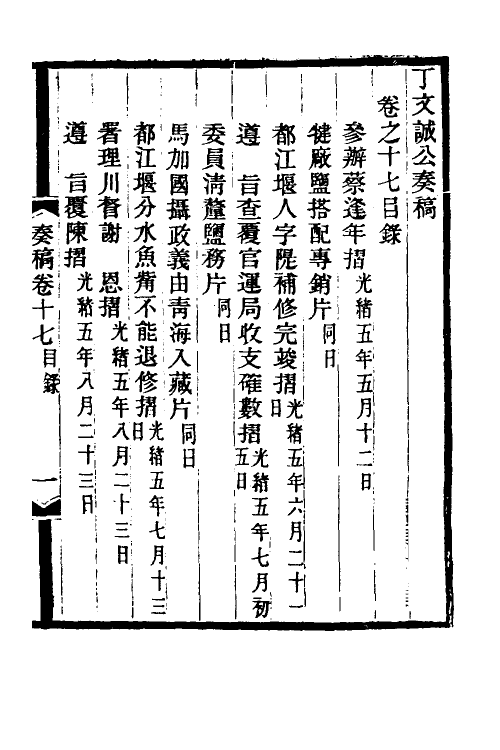 丁文誠公奏稿
卷之十七目錄
參辦蔡逢年摺 光緒五年五月十二日
犍廠鹽搭配專銷片 同日
都江堰人字隄補修完竣摺 光緒五年六月二十一日
遵 旨查覆官運局收支確數摺 光緒五年七月初五日
委員淸釐鹽務片 同日
馬加國攝政義由靑海入藏片 同日
都江堰分水魚觜不能退修摺 光緒五年七月十三日
署理川督謝 恩摺 光緒五年八月二十三日
遵 旨覆陳摺 光緒五年八月二十三日
奏稿卷十七目錄 一